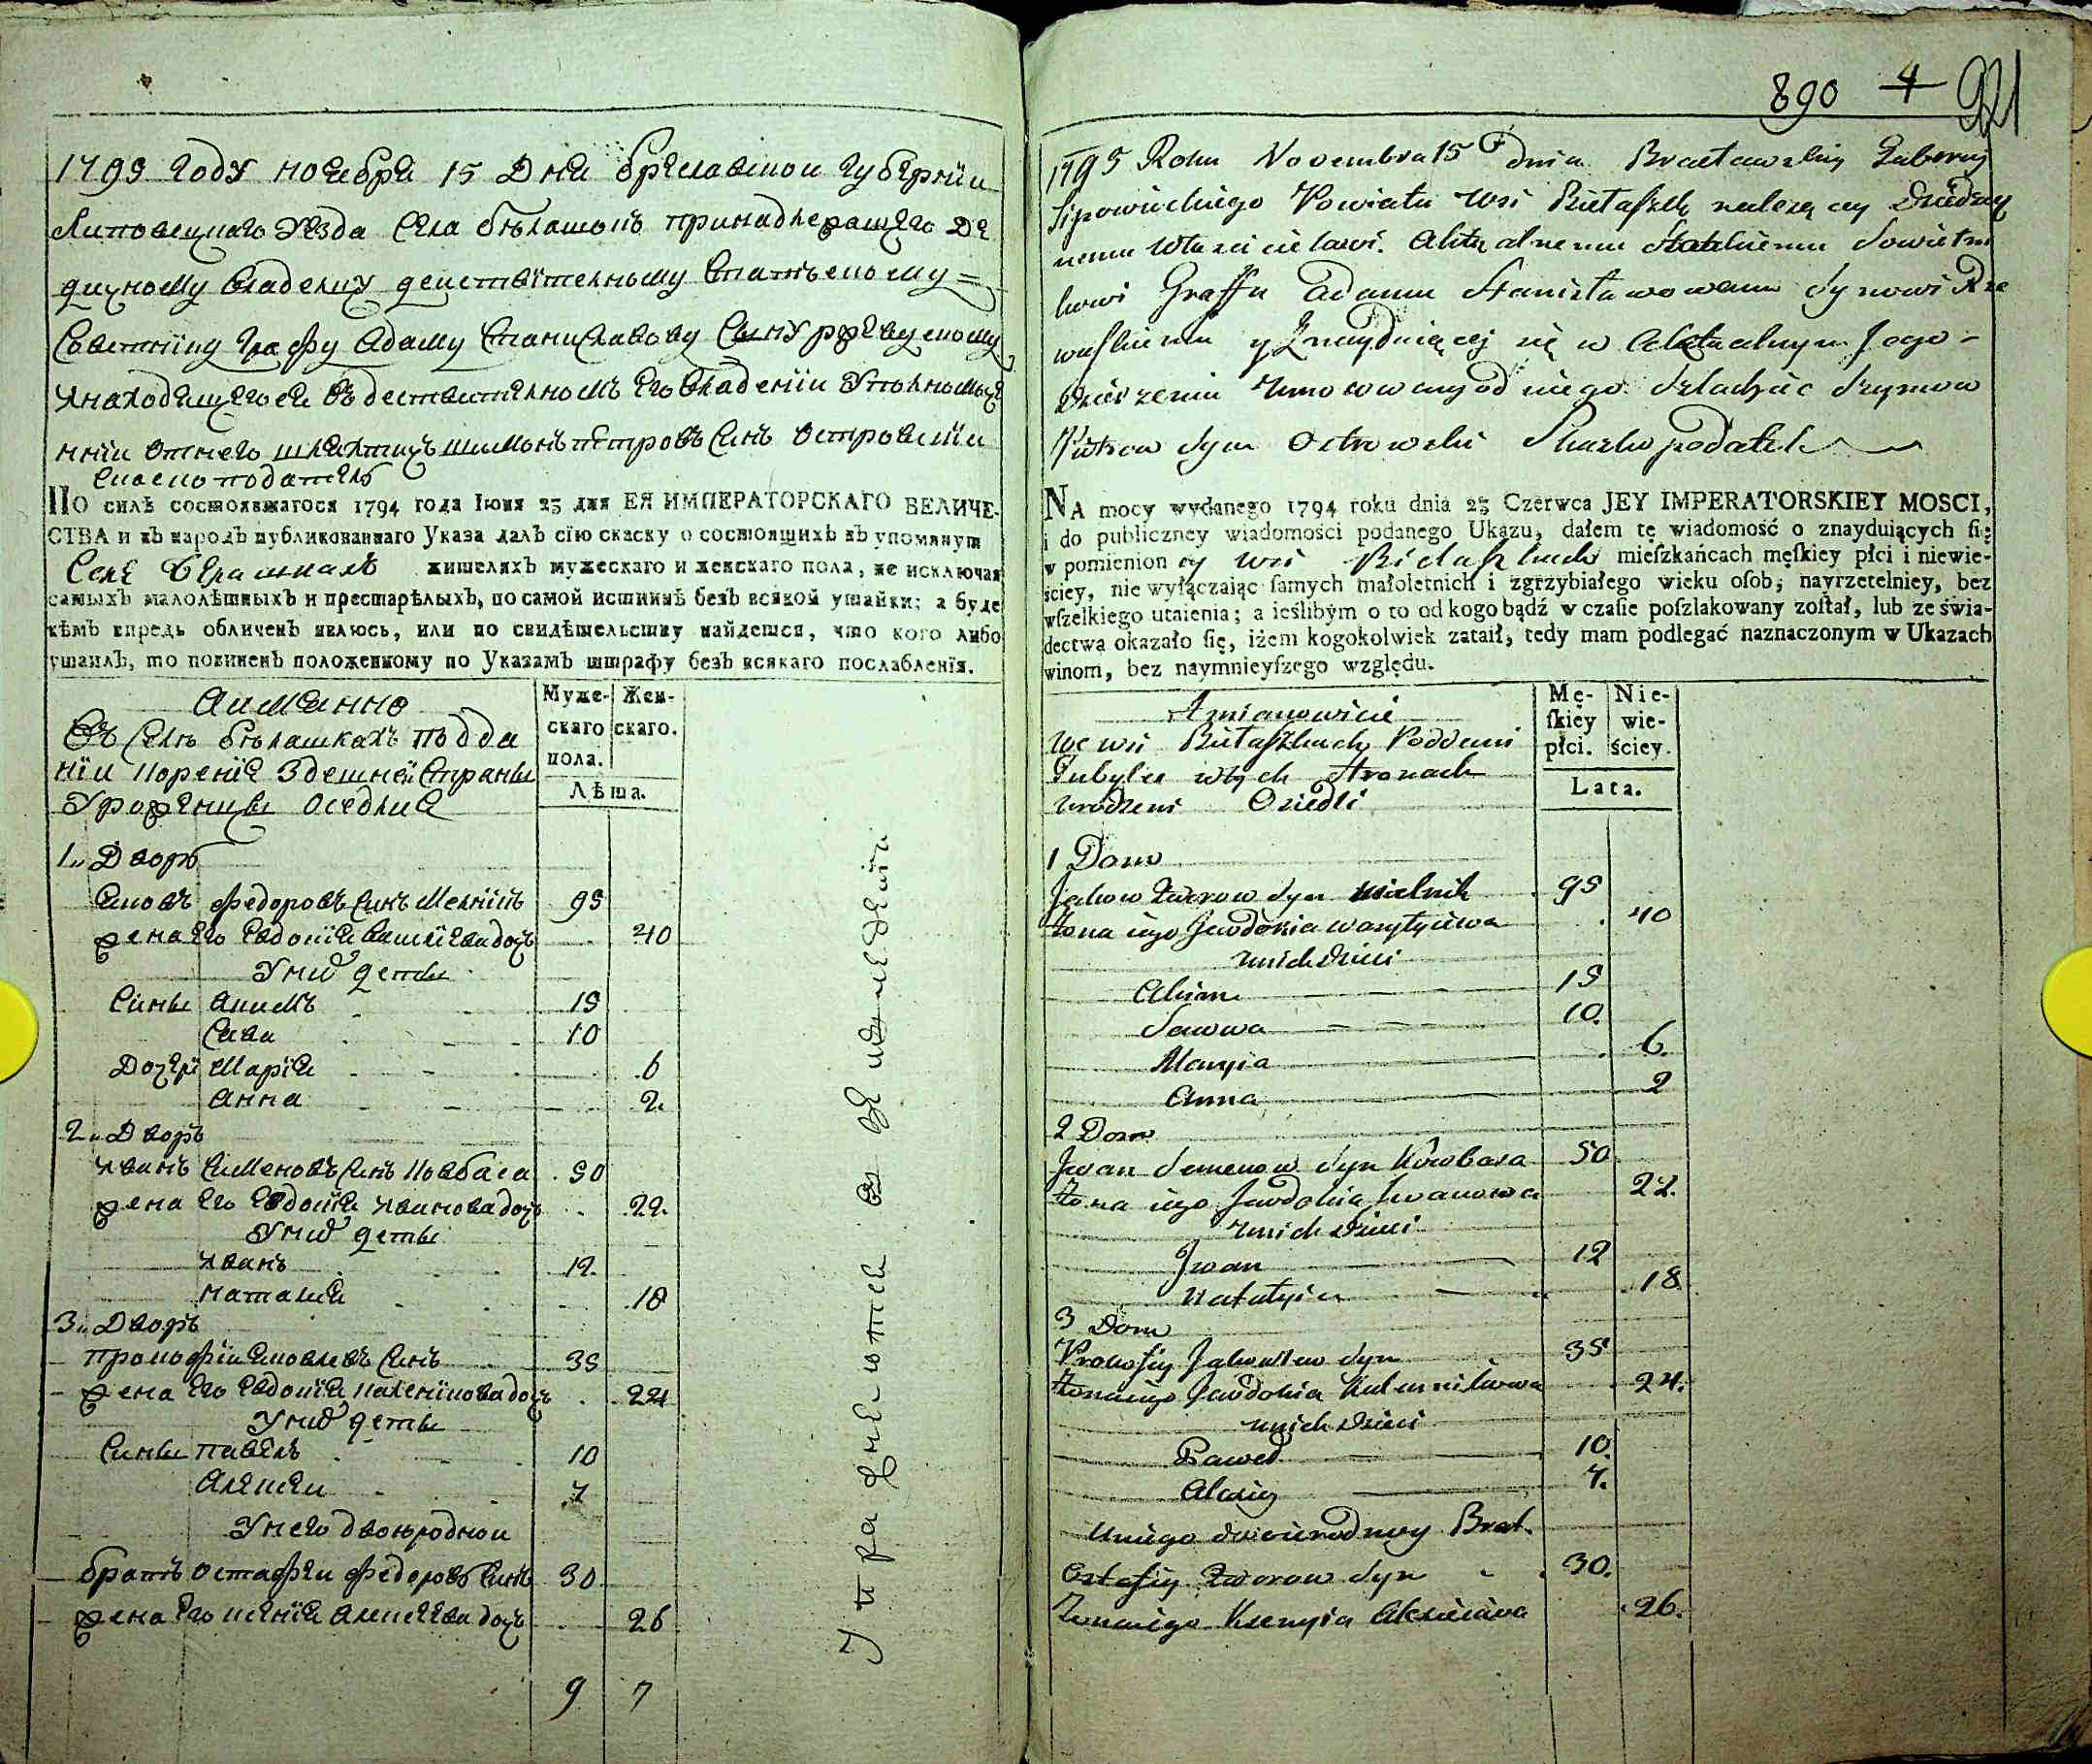 1795 году ноебря 15 Дня Бряславской губернии
Липовецкаго Уезда Села белашокъ принадлежащего Де
дичному владелцу действителному Статскому =
Советнику Графу Адаму Станиславову Сыну ржевускому
инаходящегося въ действителномъ его владении Уполномоче
ний отнего шляхтичъ шимонъ петровъ Синъ островский
Скаскоподатель
ПО силѣ состоявшагося 1794 года Іюня 23 дня ЕЯ ИМПЕРАТОРСКАГО ВЕЛИЧЕ-
СТВА и въ народъ публикованнаго Указа далъ сїю скаску о состоящихъ въ упомянут
Селе Белашкахъ жителяхъ мужескаго и женскаго пола, не исключая
самыхъ малолѣтныхъ и престарѣлыхъ, по самой истиннѣ безъ всякой утайки; а буде
кѣмъ впредь обличенъ явлюсь, или по свидѣтельству найдется, что кого либо
утаилъ, то повиненъ положенному по Указамъ штрафу безъ всякаго послабленїя.
Аименно
Въ Селѣ белашкахъ подда
нїи Корение Здешней Страны
Уроженцы оседлие
Муже-
скаго
пола.
Жен-
скаго.
Лѣта.
1. Дворъ
Яковъ Федоровъ Синъ Мелникъ 95
жена его Евдокия василиева дочь 40
У них дети
Сины Акимъ 15
Сава 10
Дочери Мария 6
Анна 2.
2. Дворъ
Иванъ Семеновъ Синъ Ковбаса 50
жена его Евдокия Иванова дочь 22.
У них дети
Иванъ 12.
Наталия 18
3. Дворъ
Прокофий Яковлевъ Синъ 35
жена его Евдокия Каленикова дочь 24
У них дети
Сины Павелъ 10
Алексей 7
У него двоюродной
братъ остафий Федоровъ Синъ 30
жена его Ксения Алексеева дочь 26
9 7
890 4 921
1795 Roku Novembra 15 dnia Bracławskiy Guberniy
Lipowieckiego Powiatu Wsi Biełaszek należącey Dziedzicz
nemu Właścicielowi. Aktualnemu Statskiemu Sowietni
kowi Graffu Adamu Stanisławowemu Synowi Rze
wuskiemu y Znayduiącey się w Aktualnym Jego -
Dzierżeniu Umocowany od niego Szlachcic Szymon
Piotrow Syn Ostrowski Skazkopodatel
NA mocy wydanego 1794 roku dnia 23 Czerwca JEY IMPERATORSKIEY MOSCI,
i do publiczney wiadomości podanego Ukazu, dałem tę wiadomość o znayduiących ſię
w pomienion ey wsi Biełaszkach mieſzkańcach męſkiey płci i niewie-
ściey, nie wyłączaiąc ſamych małoletnich i zgrzybiałego wieku oſob, nayrzetelniey, bez
wſzelkiego utaienia; a ieślibym o to od kogo bądź w czaſie poſzlakowany zoſtał, lub ze świa-
dectwa okazało ſię, iżem kogokolwiek zataił, tedy mam podlegać naznaczonym w Ukazach
winom, bez naymnieyſzego względu.
Amianowicie
We wsi Biełaszkach Poddani
Tubylce w tych Stronach
urodzeni Osiedli
Mę-
ſkiey
płci.
Nie-
wie-
ściey.
Lata.
1 Dom
Jakow Fedorow Syn Mielnik 95
Żona iego Jewdokia Wasylyiewa 40
u nich Dzieci
Akim 15
Sawwa 10.
Maryia 6.
Anna 2
2 Dom
Jwan Semenow Syn Kowbasa 50
Żona iego Jewdokia Jwanowa 22.
u nich Dzieci
Jwan 12
Natalyia 18
3 Dom
Prokofiy Jakowlew Syn 35
Żona iego Jewdokia Kalenikowa 24.
u nich Dzieci
Paweł 10.
Alexiy 7.
u niego dwoiurodnny Brat.
Ostafiy Fedorow Syn 30.
Żona iego Ksenyia Alexieiewa 26.